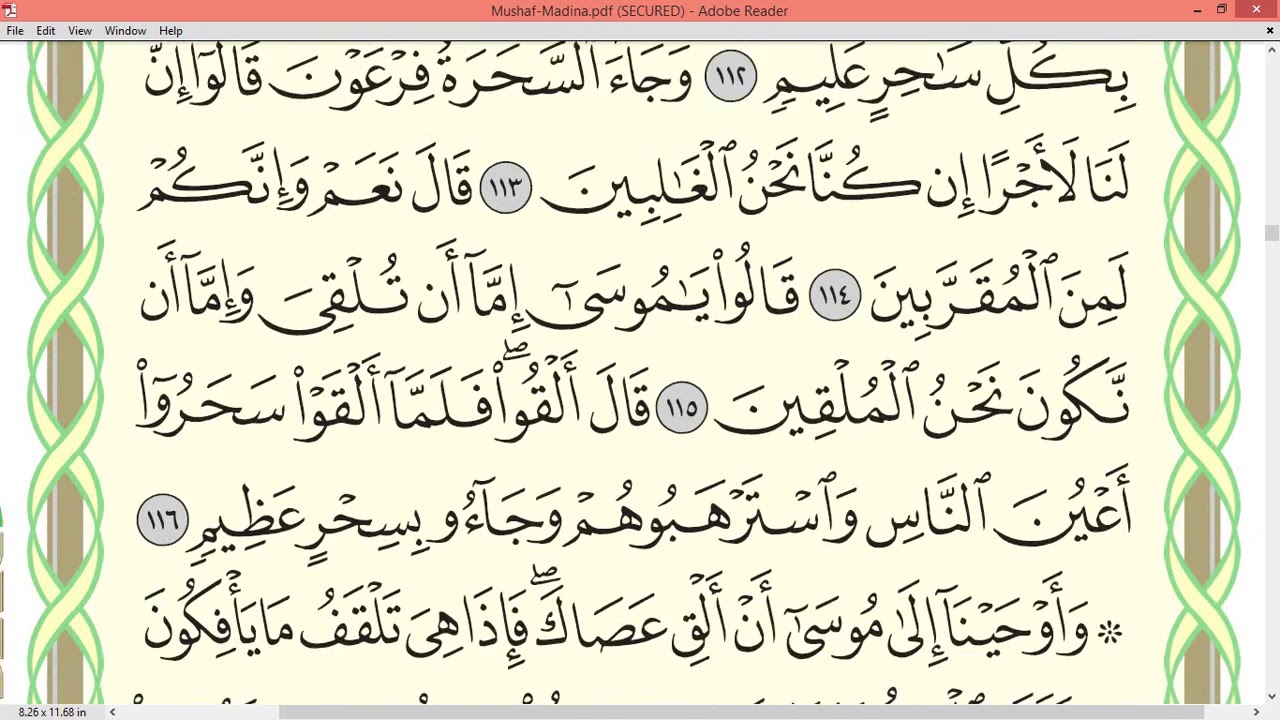 Mushaf-Madina.pdf (SECURED) - Adobe Reader
File Edit View Window Help
بِكُلِّ سَٰحِرٍ عَلِيمٍ ١١٢ وَجَآءَ ٱلسَّحَرَةُ فِرْعَوْنَ قَالُوٓا۟ إِنَّ
لَنَا لَأَجْرًا إِن كُنَّا نَحْنُ ٱلْغَٰلِبِينَ ١١٣ قَالَ نَعَمْ وَإِنَّكُمْ
لَمِنَ ٱلْمُقَرَّبِينَ ١١٤ قَالُوا۟ يَٰمُوسَىٰٓ إِمَّآ أَن تُلْقِىَ وَإِمَّآ أَن
نَّكُونَ نَحْنُ ٱلْمُلْقِينَ ١١٥ قَالَ أَلْقُوا۟ ۖ فَلَمَّآ أَلْقَوْا۟ سَحَرُوٓا۟
أَعْيُنَ ٱلنَّاسِ وَٱسْتَرْهَبُوهُمْ وَجَآءُو بِسِحْرٍ عَظِيمٍ ١١٦
۞ وَأَوْحَيْنَآ إِلَىٰ مُوسَىٰٓ أَنْ أَلْقِ عَصَاكَ ۖ فَإِذَا هِىَ تَلْقَفُ مَا يَأْفِكُونَ
8.26 x 11.68 in